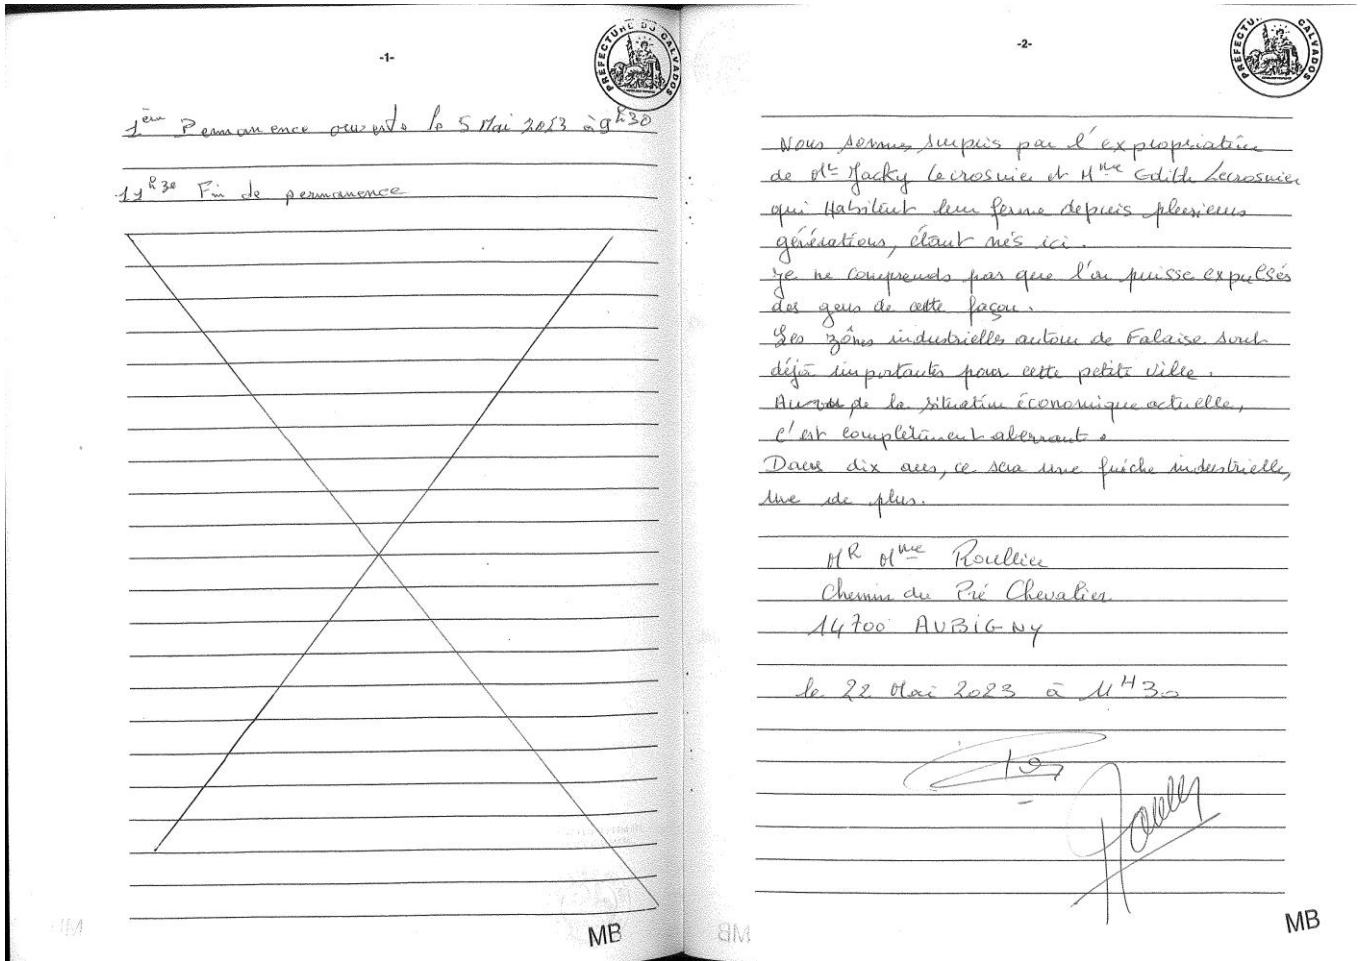 -1-
PREFECTURE DU CALVADOS
1ère Permanence ouverte le 5 Mai 2023 à 9h30
11h30 Fin de permanence
MB
-2-
PREFECTURE CALVADOS
Nous sommes surpris par l'expropriation
de Mr Jacky Lecrosnier et Mme Edith Lecrosnier
qui Habitent leur ferme depuis plusieurs
générations, étant nés ici.
Je ne comprends pas que l'on puisse expulsés
des gens de cette façon.
Les zônes industrielles autour de Falaise sont
déjà importantes pour cette petite ville.
Au vu de la situation économique actuelle,
c'est complètement aberrant.
Dans dix ans, ce sera une friche industrielle,
une de plus.
MR Mme Roullier
Chemin du Pré Chevalier
14700 AUBIGNY
le 22 Mai 2023 à 11H30
MB